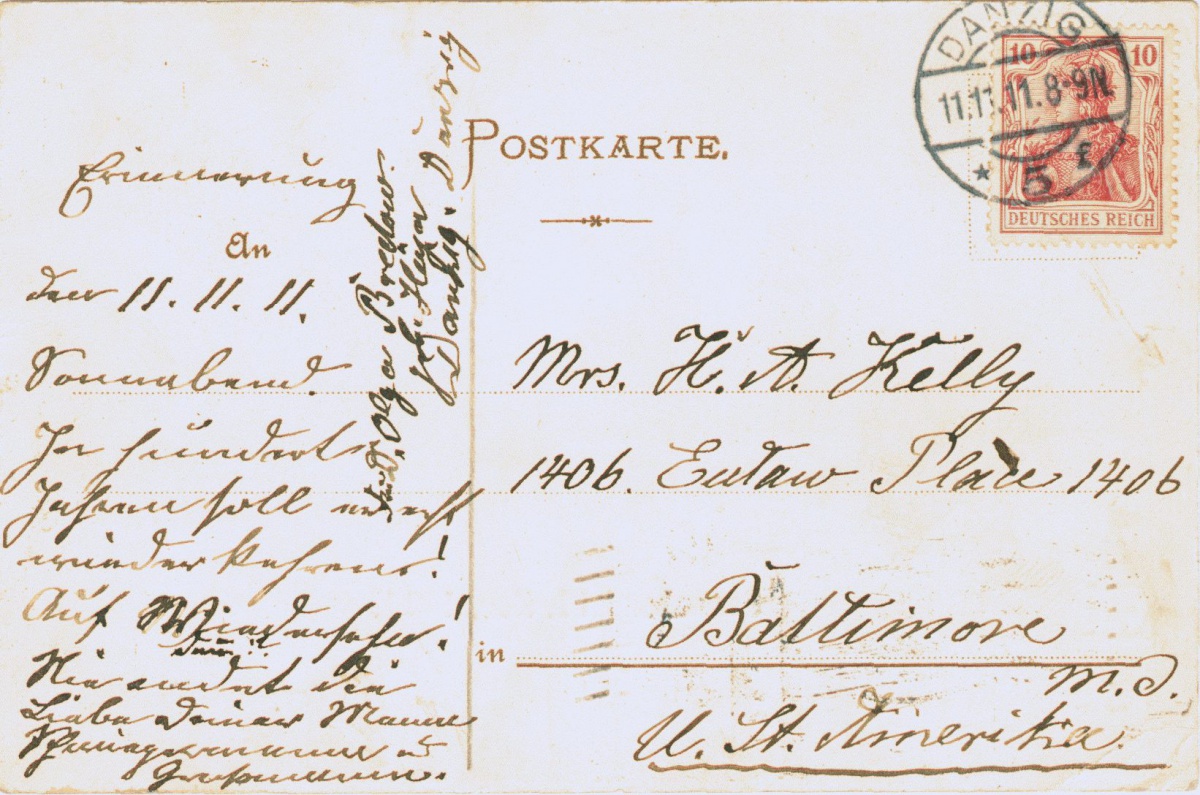 DANZIG
11.11.11.8-9N.
* 5 f
10 10
DEUTSCHES REICH
POSTKARTE.
Erinnerung
An
den 11. 11. 11.
Sonnabend.
In hundert
Jahren soll er erst
wieder kehren!
Auf Wiedersehn!
dann!!
Nie endet die
Liebe Deiner Mama
Schwiegermama u
Großmama.
Olga Bredow.
Danzig. Danzig
Mrs. H. A. Kelly
1406. Eutaw Place 1406
in Baltimore
M.D.
U. St. Amerika.